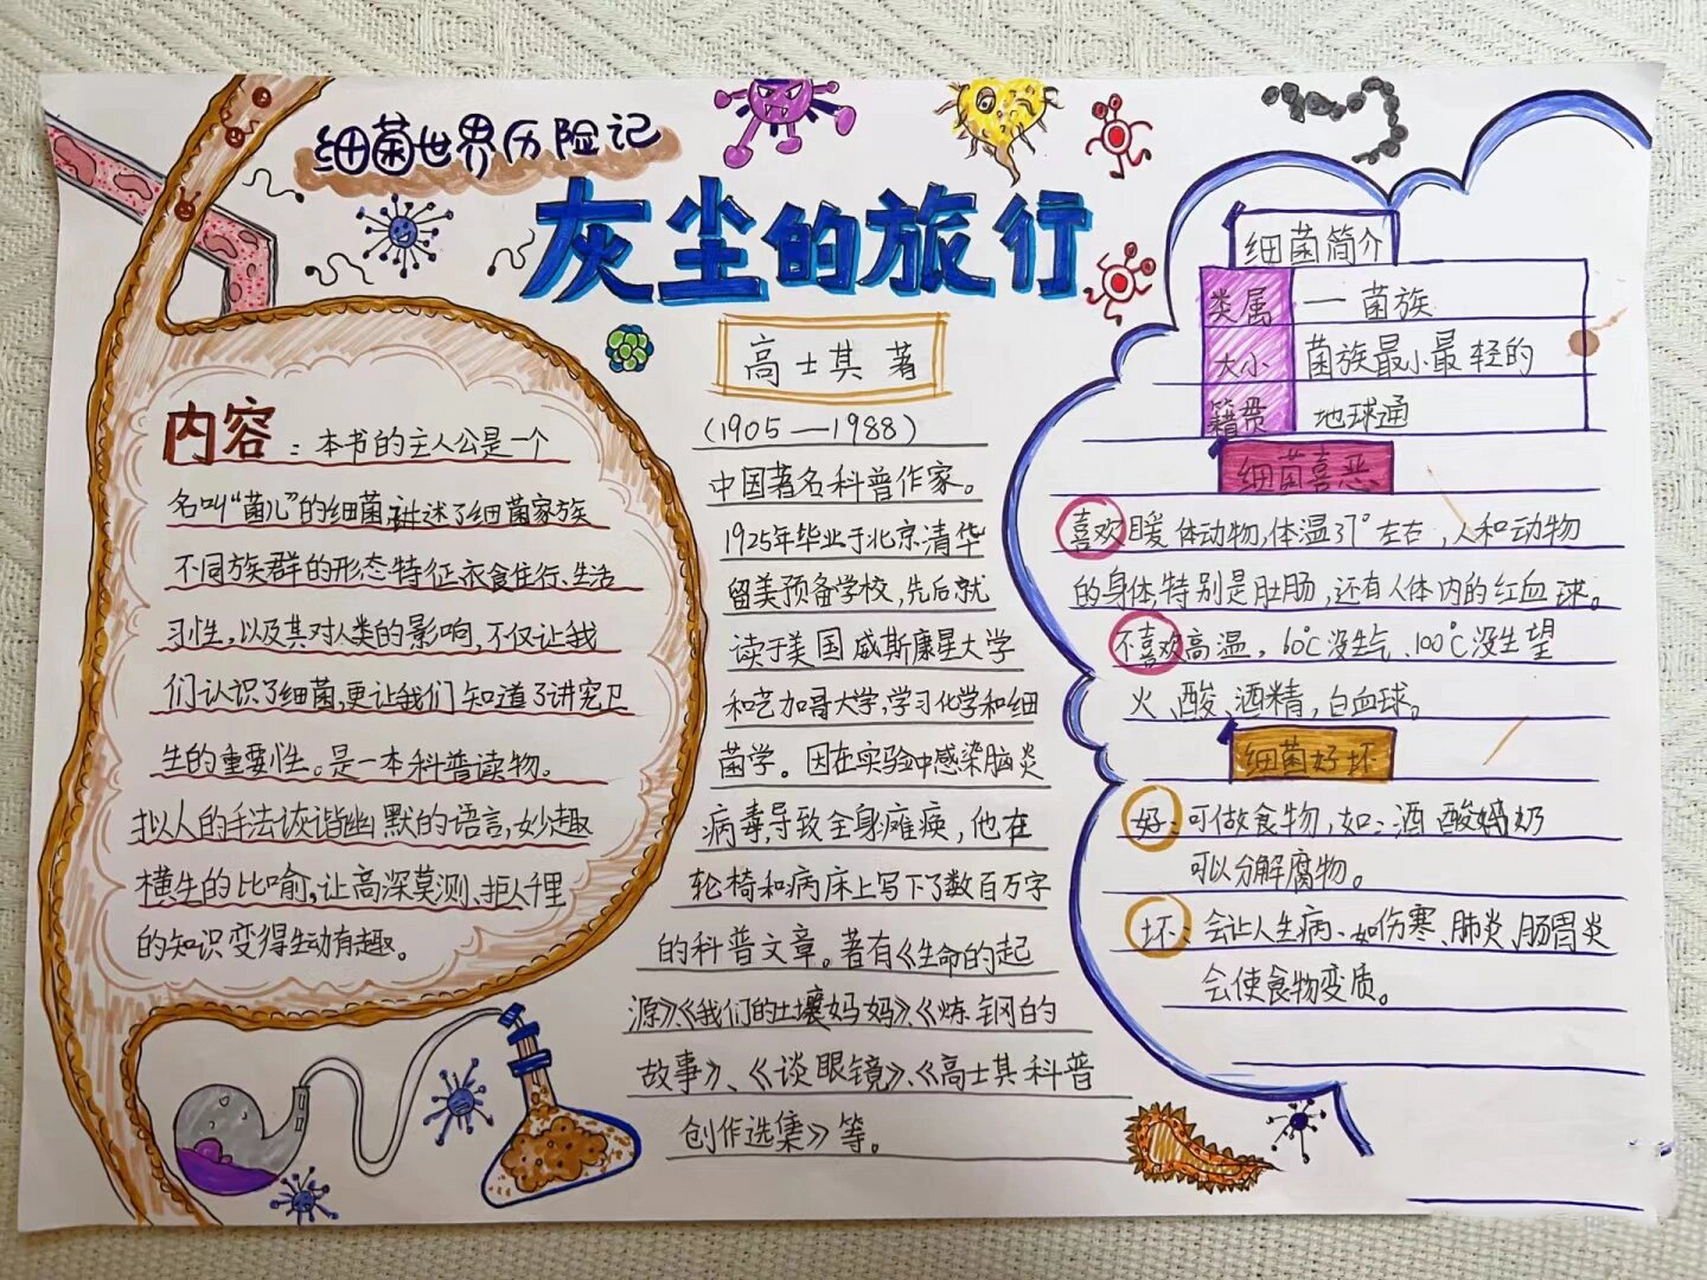 细菌世界历险记
灰尘的旅行
内容：本书的主人公是一个
名叫“菌儿”的细菌,讲述了细菌家族
不同族群的形态特征、衣食住行、生活
习性,以及其对人类的影响,不仅让我
们认识了细菌,更让我们知道了讲究卫
生的重要性。是一本科普读物。
拟人的手法诙谐幽默的语言,妙趣
横生的比喻,让高深莫测、拒人千里
的知识变得生动有趣。
高士其 著
(1905—1988)
中国著名科普作家。
1925年毕业于北京清华
留美预备学校,先后就
读于美国威斯康星大学
和艺加哥大学,学习化学和细
菌学。因在实验中感染脑炎
病毒,导致全身瘫痪,他在
轮椅和病床上写下了数百万字
的科普文章。著有《生命的起
源》、《我们的土壤妈妈》、《炼钢的
故事》、《谈眼镜》、《高士其科普
创作选集》等。
细菌简介
类属 一菌族
大小 菌族最小最轻的
籍贯 地球通
细菌喜恶
喜欢暖体动物,体温37°左右,人和动物
的身体,特别是肚肠,还有人体内的红血球。
不喜欢高温,60℃没生气、100℃没生望
火、酸、酒精,白血球。
细菌好坏
好:可做食物,如:酒 酸奶
可以分解腐物。
坏:会让人生病、如伤寒、肺炎、肠胃炎
会使食物变质。